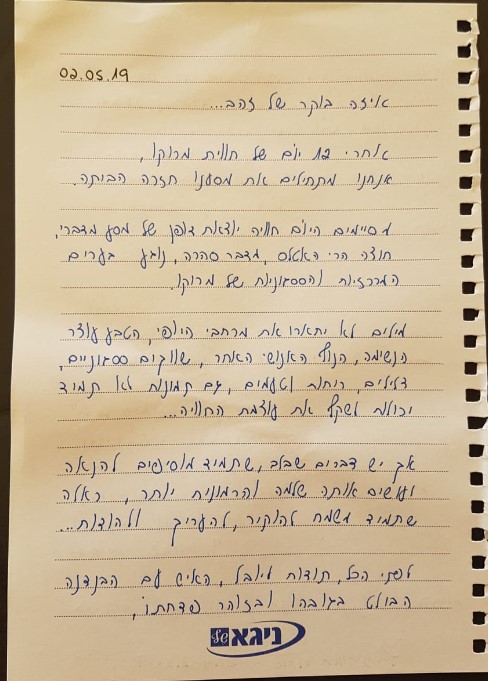 02.05.19
איזה בוקר של זהב...
אחרי 12 יום של חווית מרוקו,
אנחנו מתחילים את מסענו חזרה הביתה.
מסיימים היום חוויה יוצאת דופן של מסע מדברי,
חוצה הרי האטלס, מדבר סהרה, נוגע בערים
המרכזיות והססגוניות של מרוקו.
מילים לא יתארו את מרחבי היופי, הטבע עוצר
הנשימה, הנוף האנושי האחר, שווקים ססגוניים,
צלילים, ריחות וטעמים, גם תמונות לא תמיד
יכולות לשקף את עוצמת החוויה...
אך יש דברים שבלב, שתמיד מוסיפים להנאה
ועושים אותה שלמה והרמונית יותר, כאלה
שתמיד משמח להוקיר, להעריך ולהודות...
לפני הכל, תודות ליובל, האיש עם הבנדנה
הבולט בגובהו ובזוהר פדחתו,
ניגא